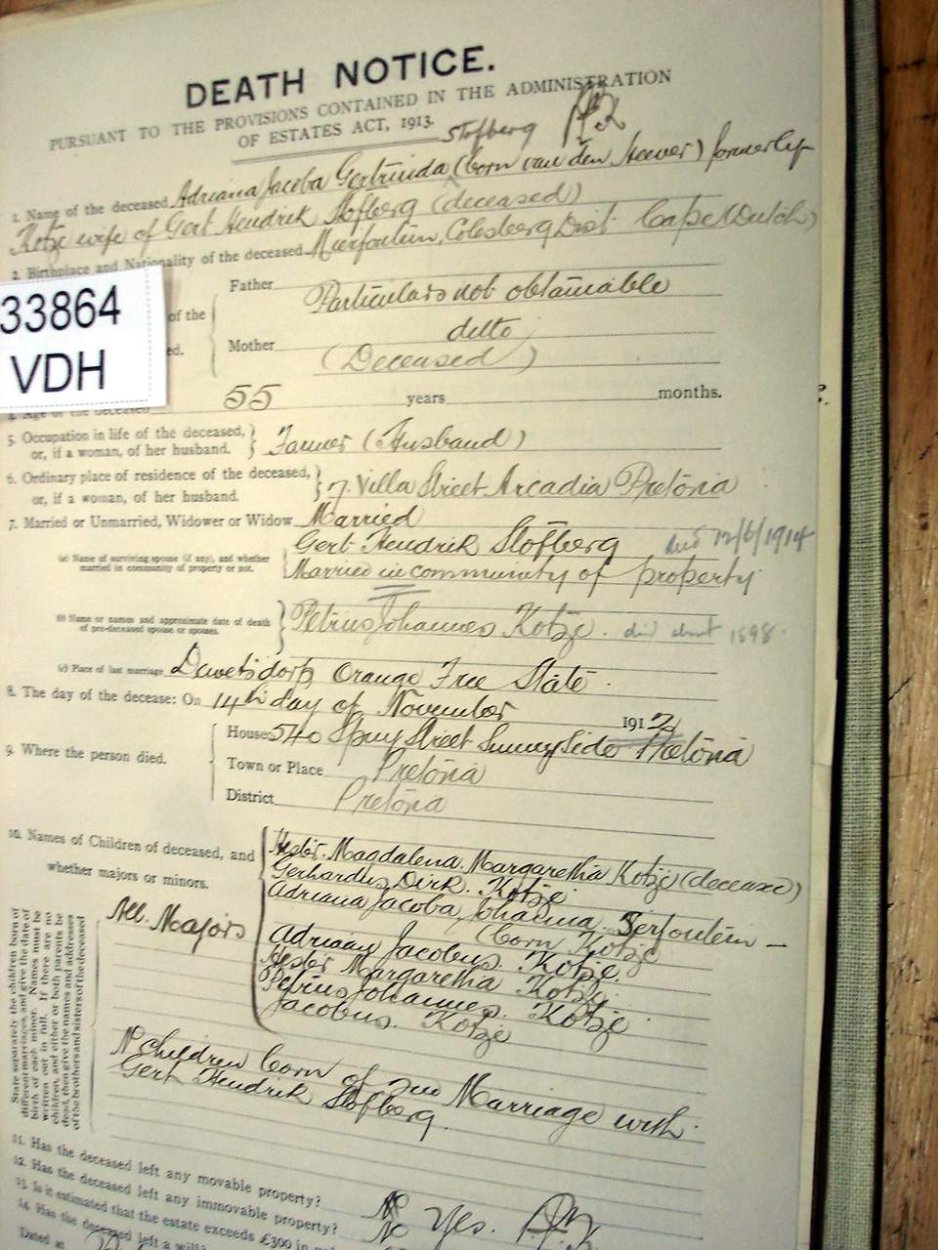 DEATH NOTICE.
PURSUANT TO THE PROVISIONS CONTAINED IN THE ADMINISTRATION
OF ESTATES ACT, 1913.
Stofberg
1. Name of the deceased Adriana Jacoba Gertruida (born van den Heever) formerly
Kotze wife of Gert Hendrik Stofberg (deceased)
2. Birthplace and Nationality of the deceased Mierfontein, Colesberg Dist. Cape (Dutch)
33864
VDH
of the
ed.
Father Particulars not obtainable
Mother ditto
(Deceased)
4. Age of the deceased 55 years months.
5. Occupation in life of the deceased, or, if a woman, of her husband. Farmer (Husband)
6. Ordinary place of residence of the deceased, or, if a woman, of her husband. 7. Villa Street Arcadia Pretoria
7. Married or Unmarried, Widower or Widow Married
(a) Name of surviving spouse (if any), and whether married in community of property or not. Gert Hendrik Stofberg died 12/6/1914
Married in community of property
(b) Name or names and approximate date of death of pre-deceased spouse or spouses. Petrus Johannes Kotze. died about 1898.
(c) Place of last marriage Dewetsdorp, Orange Free State.
8. The day of the decease: On 14th day of November 1912
9. Where the person died.
House 540 Spuy Street Sunnyside Pretoria
Town or Place Pretoria
District Pretoria
10. Names of Children of deceased, and whether majors or minors.
Hester Magdalena Margaretha Kotze (deceased)
Gerhardus Dirk. Kotze
Adriana Jacoba, Johanna Serfontein –
(born Kotze
Adriaan Jacobus Kotze.
Hester Margaretha Kotze
Petrus Johannes. Kotze
Jacobus. Kotze
All Majors
State separately the children born of
different marriages, and give the date of
birth of each minor. Names must be
written out in full. If there are no
children, and either or both parents be
dead, then give the names and addresses
of the brothers and sisters of the deceased
N children born of Marriage with
Gert Hendrik Stofberg.
11. Has the deceased left any movable property?
12. Has the deceased left any immovable property? No Yes.
13. Is it estimated that the estate exceeds £300 in No
14. Has the deceased left a will
Dated at